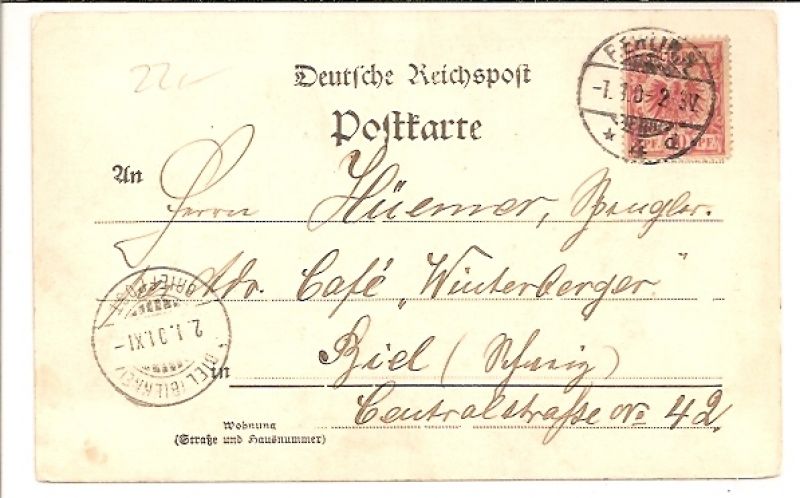 22
Deutsche Reichspost
Postkarte
An
Herrn Hüemer, Spengler.
Adr. Café "Winterberger"
Biel (Schweiz)
in
Centralstraße No 42
Wohnung
(Straße und Hausnummer)
BERLIN
4 d
BRIEFPOST
2.1.01.XI-
BIEL (BIENNE)